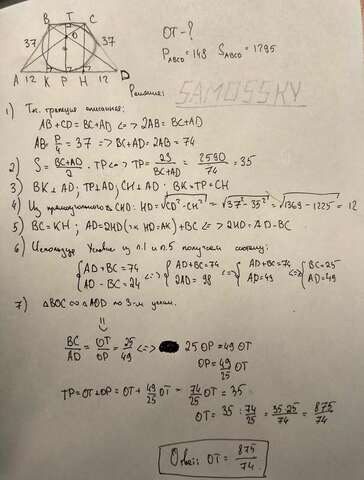 B T C
O
37 37
A 12 K P H 12 D
OT-?
P ABCD = 148 S ABCD = 1295
Решение:
SAMOSSKY
1) Т.к. трапеция описанная:
AB+CD=BC+AD <=> 2AB=BC+AD
AB=P/4=37 => BC+AD=2AB=74
2) S=(BC+AD)/2 · TP <=> TP=2S/(BC+AD)=2590/74=35
3) BK⊥AD; TP⊥AD; CH⊥AD; BK=TP=CH
4) Из прямоугольного CHD: HD=√(CD²-CH²)=√(37²-35²)=√(1369-1225)=12
5) BC=KH; AD=2HD(т.к HD=AK)+BC <=> 2HD=AD-BC
6) Используя условие из п.1 и п.5 получаем систему:
{AD+BC=74 <=> {AD+BC=74 <=> {AD+BC=74 <=> {BC=25
AD-BC=24 2AD=98 AD=49 AD=49
7) △BOC ∾ △AOD по 3-м углам.
=>
BC/AD=OT/OP=25/49 <=> 25OP=49OT
OP=49/25 OT
TP=OT+OP=OT+49/25 OT=74/25 OT=35
OT=35:74/25=35·25/74=875/74
Ответ: OT=875/74.